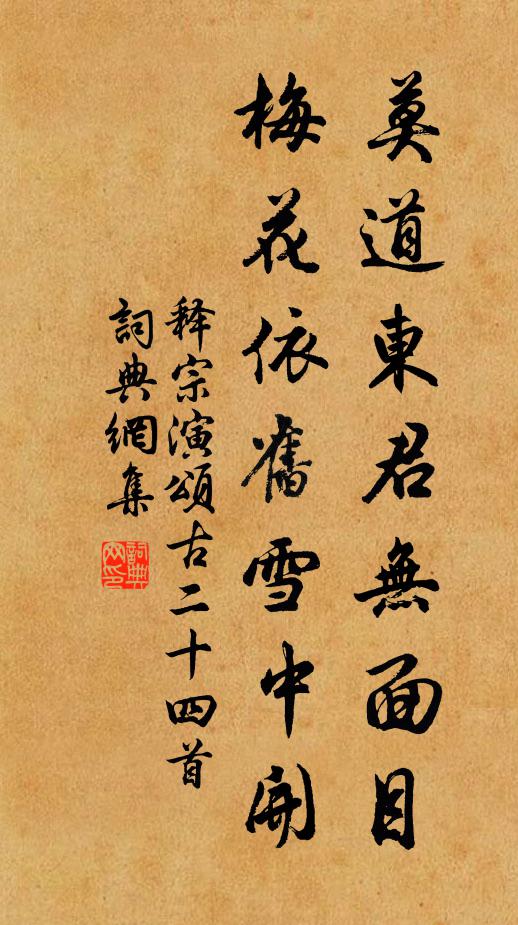 莫道東君無面目
梅花依舊雪中開
释宗演頌古二十四首
詞典網集
詞典網印